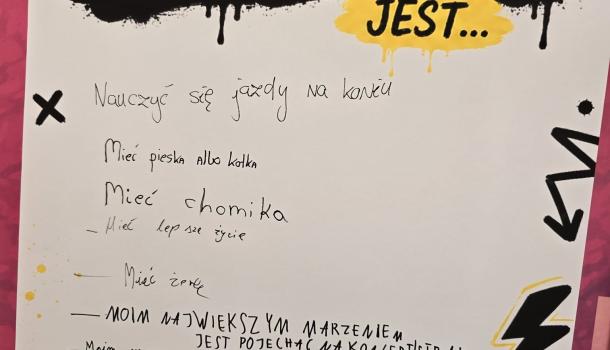 JEST...
Nauczyć się jazdy na koniu
Mieć pieska albo kotka
Mieć chomika
– Mieć lepsze życie
— Mieć żonę
— MOIM NAJWIEKSZYM MARZENIEM
JEST POJECHAĆ NA KONCERT
Moim